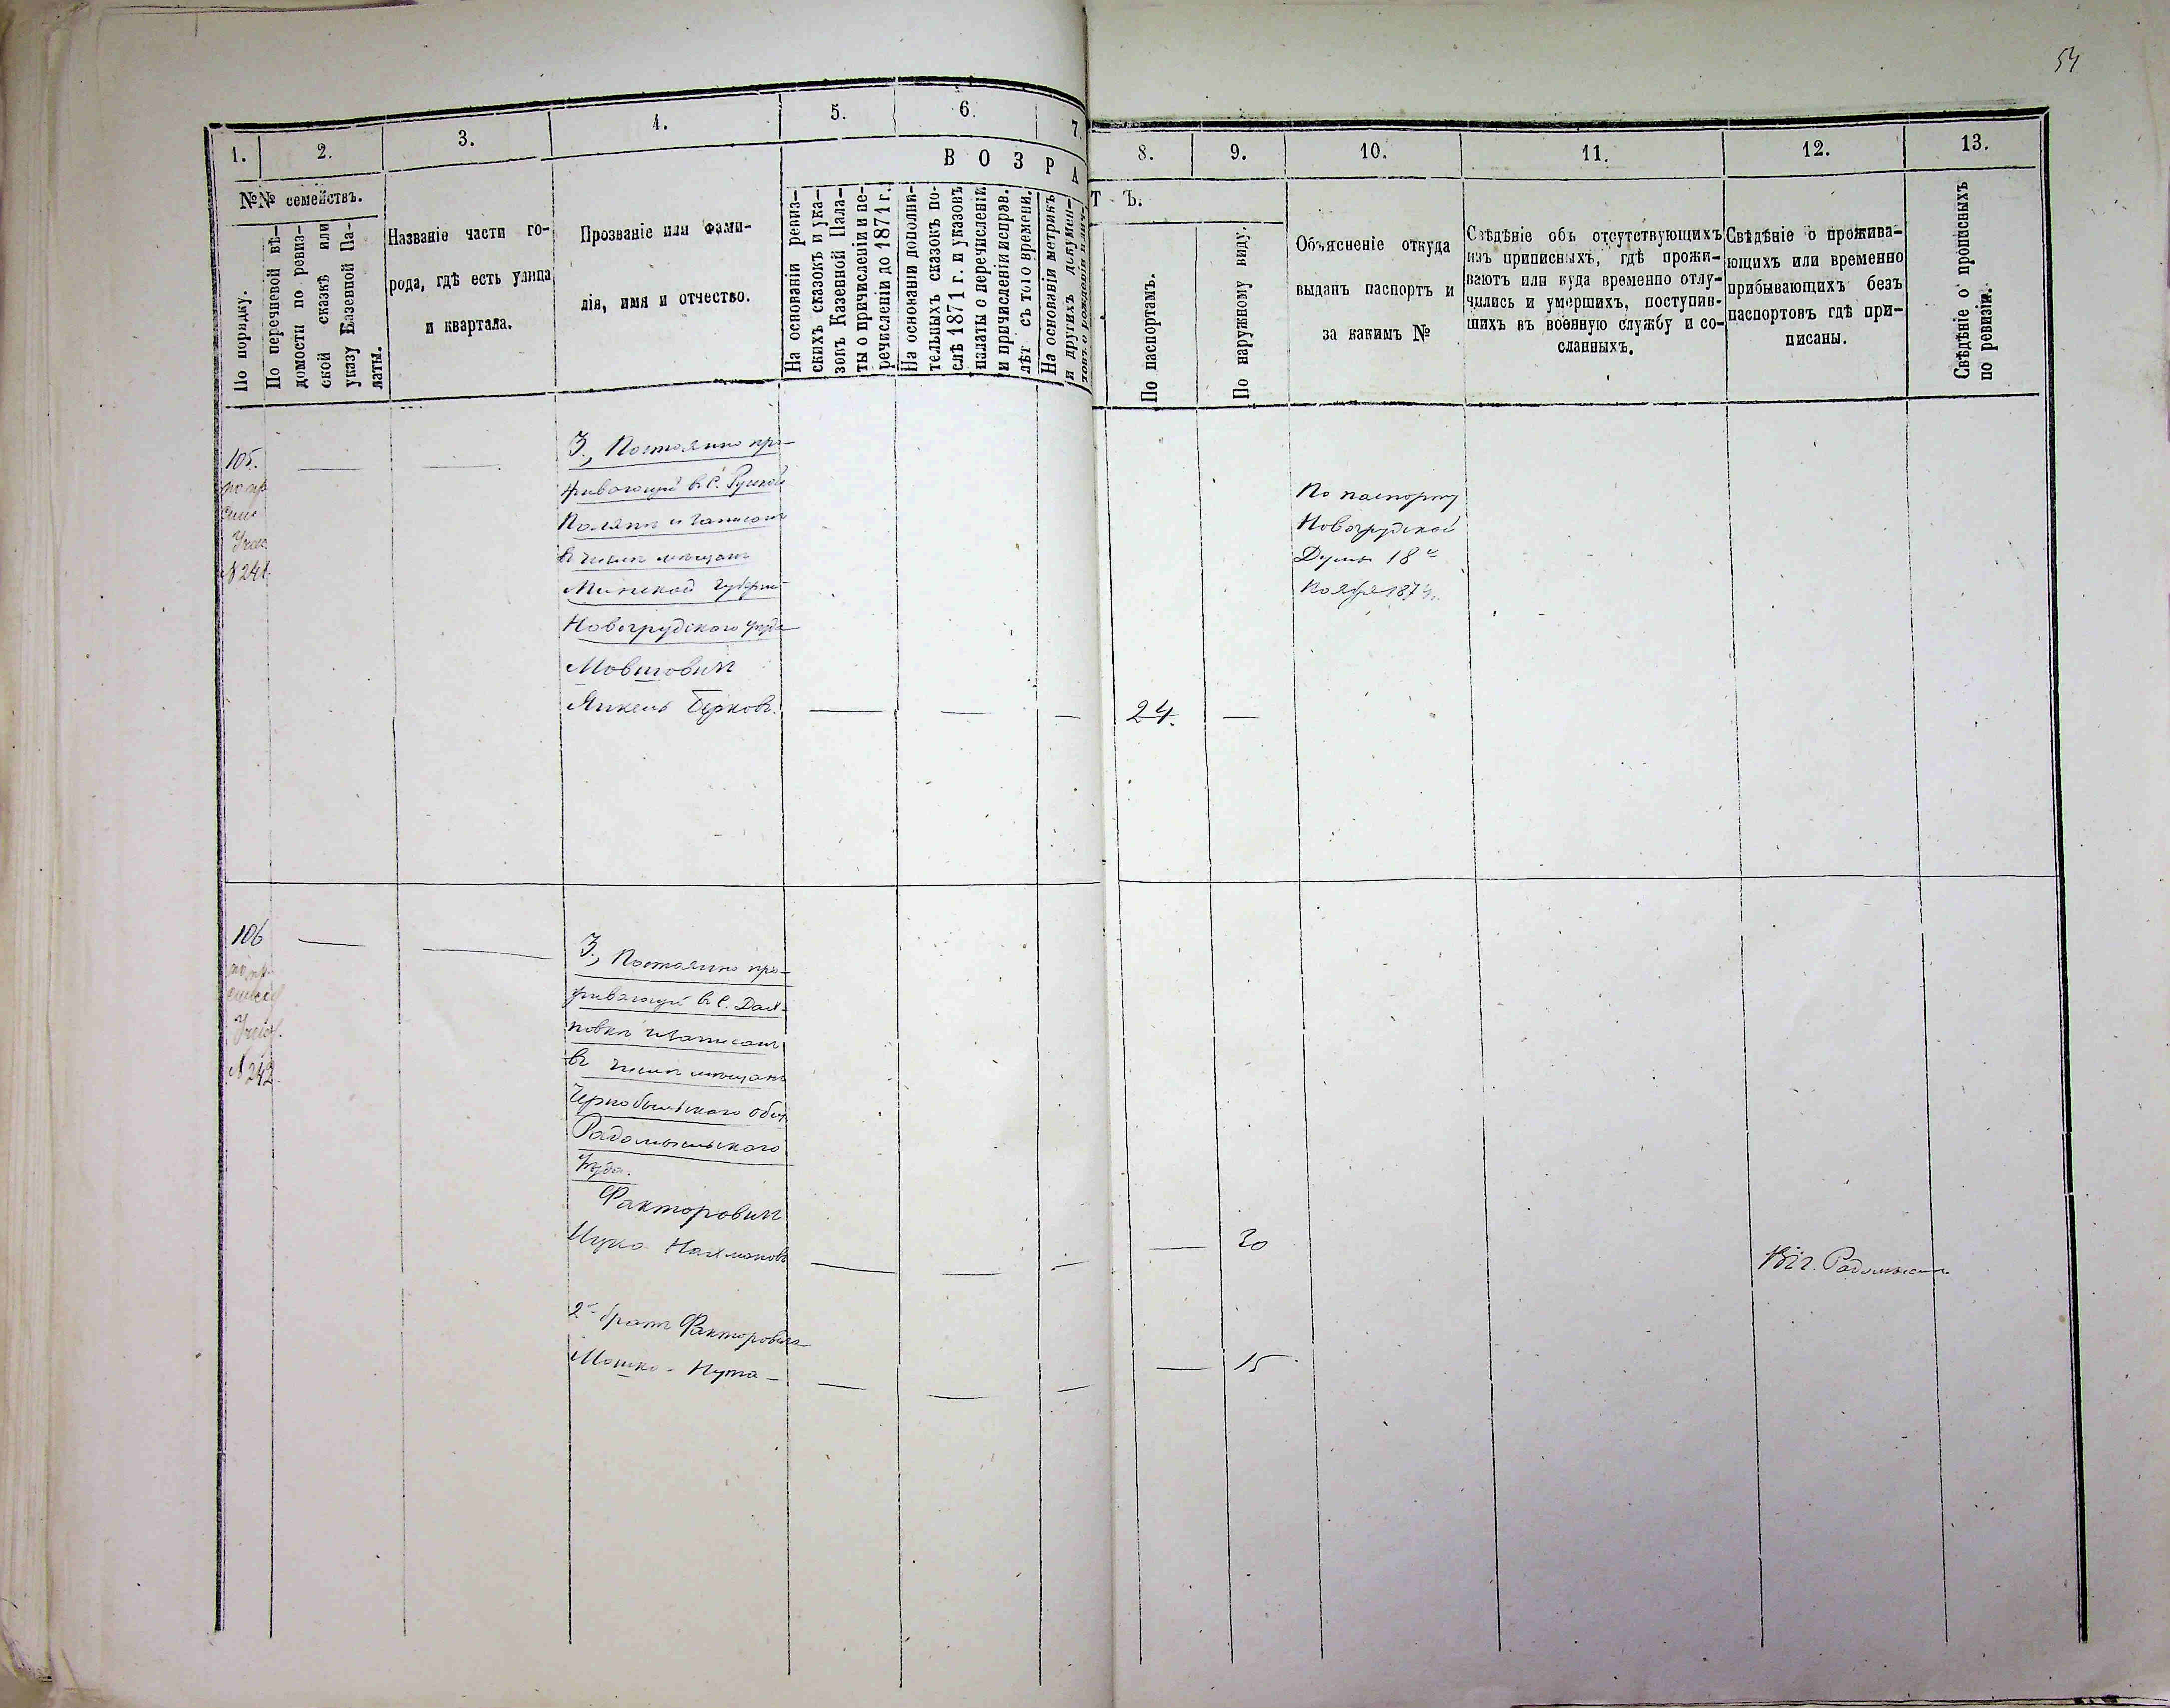 54
1.
2.
3.
4.
5.
6.
7.
8.
9.
10.
11.
12.
13.
№№ семействъ.
ВОЗРА
ТЪ.
По порядку.
По перечневой вѣ-
домости по ревиз-
ской сказкѣ или
указу Казенной Па-
латы.
Названіе части го-
рода, гдѣ есть улица
и квартала.
Прозваніе или фами-
лія, имя и отчество.
На основаніи ревиз-
скихъ сказокъ и ука-
зовъ Казенной Пала-
ты о причисленіи и пе-
речисленіи до 1871 г.
На основаніи дополни-
тельныхъ сказокъ по-
слѣ 1871 г. и указовъ
палаты о перечисленіи
и причисленіи исправ.
лѣт съ того времени.
На основаніи метрикъ
и другихъ докумен-
товъ о рожденіи
По паспортамъ.
По наружному виду.
Объясненіе откуда
выданъ паспортъ и
за какимъ №
Свѣдѣніе объ отсутствующихъ
изъ приписныхъ, гдѣ прожи-
ваютъ или куда временно отлу-
чились и умершихъ, поступив-
шихъ въ военную службу и со-
сланныхъ.
Свѣдѣніе о прожива-
ющихъ или временно
прибывающихъ безъ
паспортовъ гдѣ при-
писаны.
Свѣдѣніе о прописныхъ
по ревизіи.
105.
по пр
№ 241.
3., Постоянно про-
живающій въ С. Руской
Полянѣ и записанъ
въ числѣ мѣщанъ
Минской Губерніи
Новогрудскаго уѣзда
Мовшовичъ
Янкель Берковъ.
24.
По паспорту
Новогрудской
Думы 18
Ноября 187
106
№ 242.
3., Постоянно про-
живающій въ С.
и записанъ
въ числѣ мѣщанъ
Чернобыльскаго общ.
Радомысльскаго
Уѣзда.
Факторовичъ
Нахмановъ
30
Въ г. Радомыслѣ
2й братъ Факторовичъ
Мошко - Нута -
15